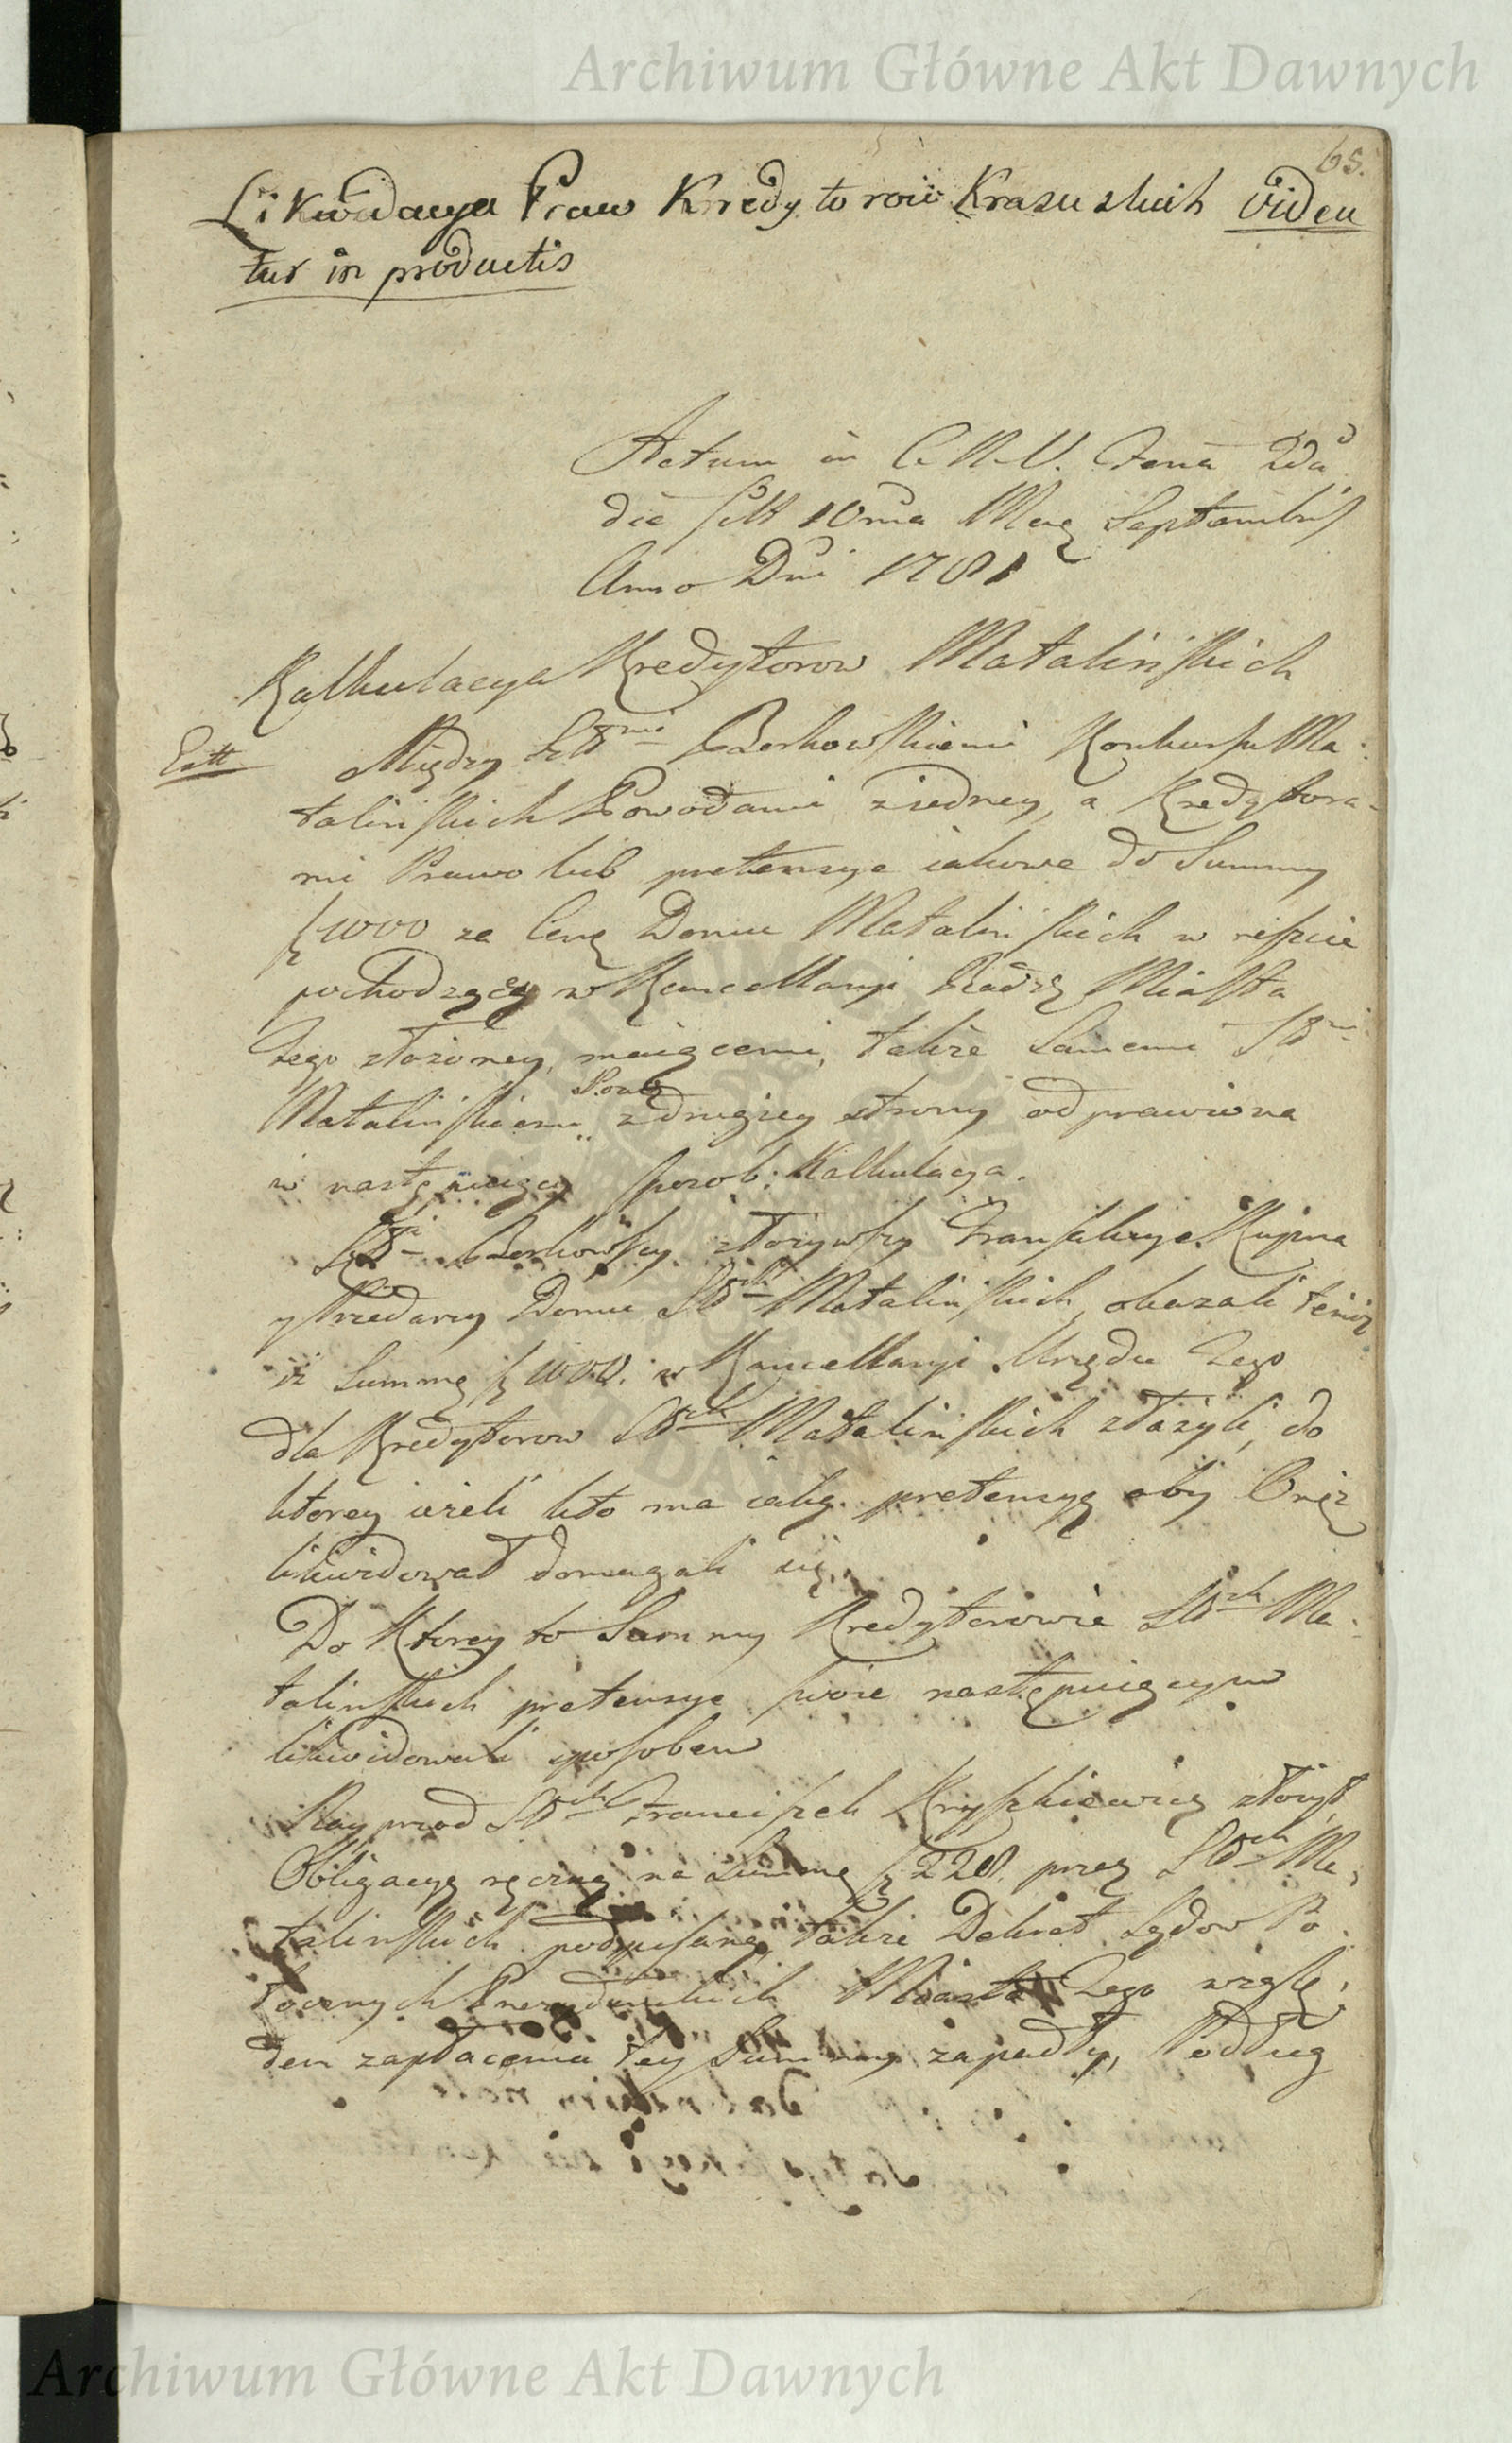 Archiwum Główne Akt Dawnych
65.
Likwidacya Praw Kredytorow Krasuskich viden
tur in productis
Actum in C. N. V. Feria 2da
die scilt 10ma Mens Septembris
Anno Dni 1781
Kalkulacya Kredytorow Matalińskich
Extt
Między Sltmi Borkowskiemi Konkursu Ma
talińskich Powodami z iedney, a Kredytora
mi Prawo lub pretensye iakowe do Summy
f 1000 za Cenę Domu Matalińskich w reszcie
pochodzącey w Kancellaryi Radzy Miasta
Tego złożoney, maiącemi, także Samemi
Matalińskiemi Pozw z drugiey strony odprawiona
w następuiący sposob: Kalkulacya.
Borkowscy złożywszy Tranzakcye Kupna
y Przedarzy Domu Matalińskich, okazali
iż Summę f 1000. w Kancellaryi Urzędu Tego
dla Kredytorow Matalińskich złożyli, do
ktorey ieżeli kto ma iaką pretensyą aby Onęz
likwidował domagali się.
Do Ktorey to Summy Kredytorowie Ma
talinskich pretensye swoie następuiącym
likwidowali sposobem
Nayprzod Franciszek Kryszkiewicz złożył
Obligacyą ręczną na Summę f 228. przez Ma
talinskich podpisaną, także Dekret Sądow Po
tocznych Prezydenckich Miasta Tego wzglę
dem zapłacenia tey Summy zapadły, Podług
Archiwum Główne Akt Dawnych